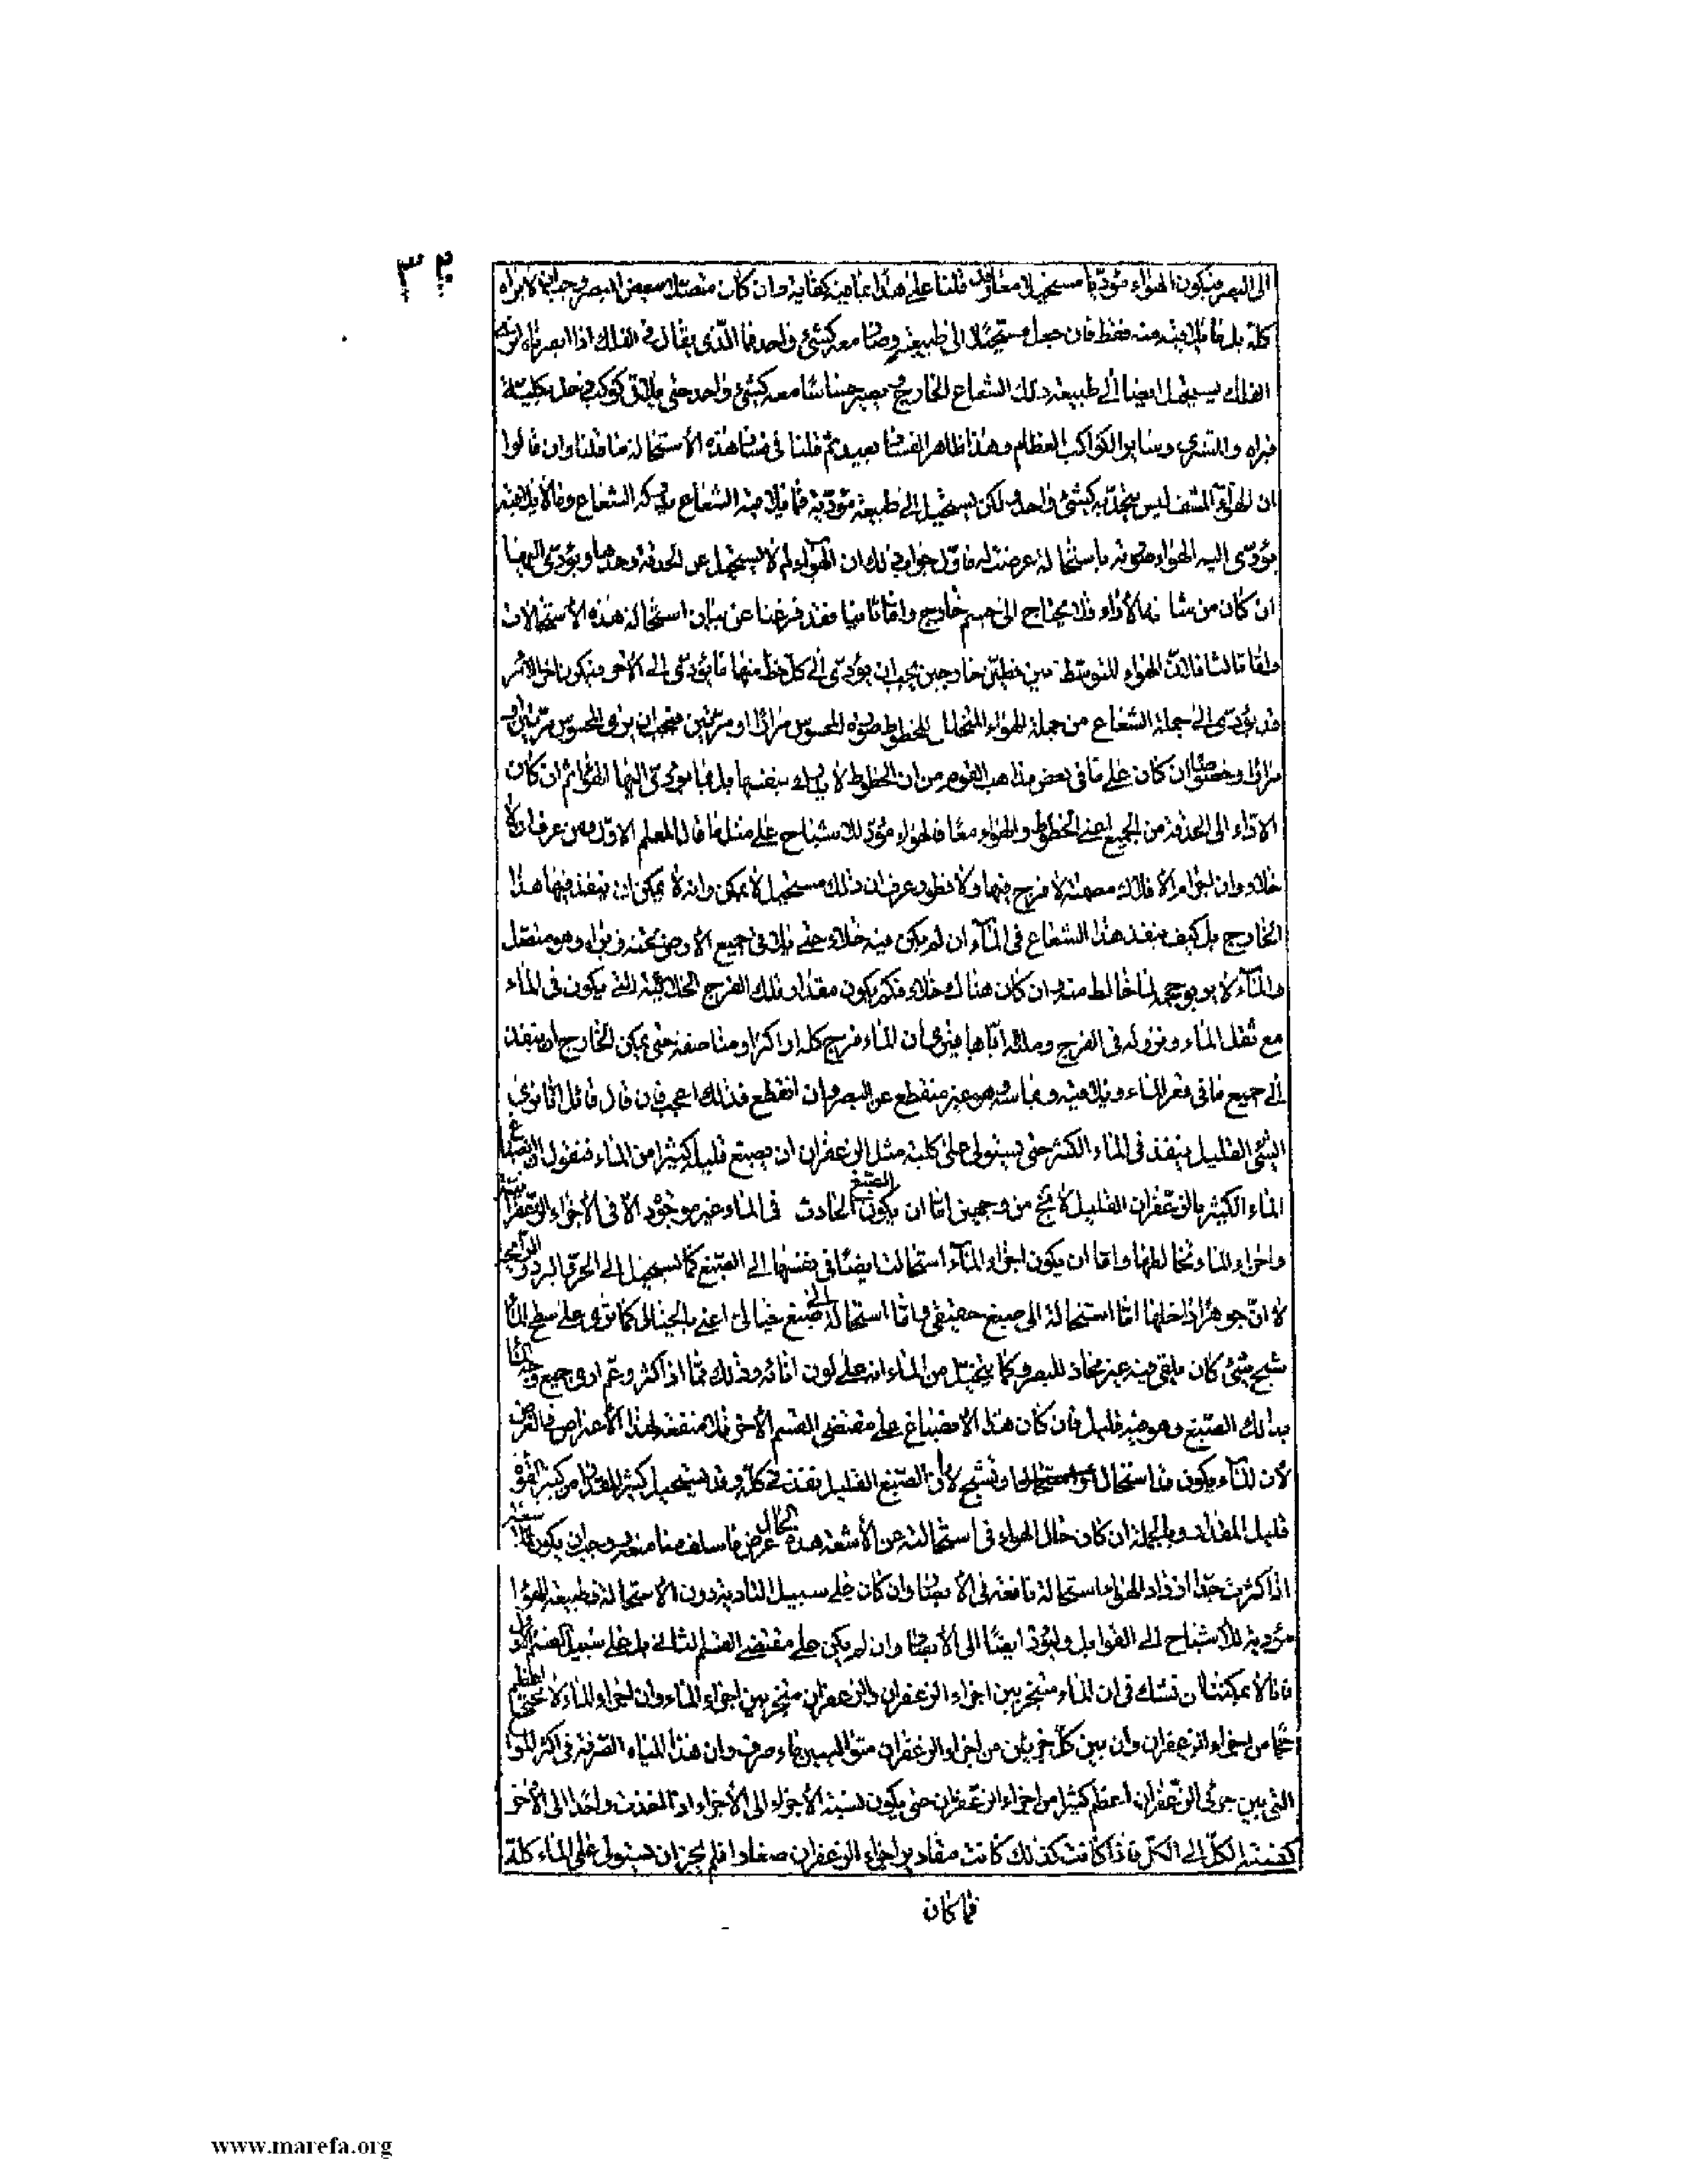 الى البصر فيكون الهواء مؤديا مستحيلا معا قلنا على هذا بما فيه كفاية وان كان متصلا ببعض البصر وجب ان لا يراه
كله بل ما يلاقيه منه فقط فان جعل مستحيلا الى طبيعته وصار معه كشئ واحد فما الذى يقال فى الفلك اذا ابصرناه
الفلك يستحيل ايضا الى طبيعة ذلك الشعاع الخارج ويصير حساسا معه كشئ واحد حتى يلاقى كوكب زحل بكليته
فيراه والمشترى وسائر الكواكب العظام وهذا ظاهر الفساد بعيد ثم قلنا فى فساد هذه الاستحالة ما قلنا وان قالوا
ان الهواء المشف ليس يتحد به كشئ واحد لكن يستحيل الى طبيعة مؤدية فما يلاقيه الشعاع يدركه الشعاع وما لا يلاقيه
يؤدى اليه الهواء صورته باستحالة عرضت له فاول جواب ذلك ان الهواء لم لا يستحيل عن الحدقة وحدها ويؤدى اليها
ان كان من شانه الاداء فلا يحتاج الى جسم خارج واما ثانيا فقد فرغنا عن بيان استحالة هذه الاستحالات
واما ثالثا فلان الهواء المتوسط بين خطين خارجين يجب ان يؤدى الى كل خط منهما ما يؤدى الى الآخر فيكون آخر الامر
قد يؤدى الى جملة الشعاع من جملة الهواء المتخلل للخطوط صورة المحسوس مرارا او مرتين فيجب ان يرى المحسوس مرتين او
مرارا وخصوصا ان كان على ما فى بعض مذاهب القوم من ان الخطوط لا يدرك بنفسها بل بما يؤدى اليها الهواء ثم ان كان
الاداء الى الحدقة من الجميع اعنى الخطوط والهواء معا فالهواء مؤد للاشباح على مثل ما قال المعلم الاول ومن عرف ان لا
خلاء وان اجرام الافلاك مصمتة لا فرج فيها ولا فطور عرف ان ذلك مستحيل لا يمكن وانه لا يمكن ان ينفذ فيها هذا
الخارج بل كيف ينفذ هذا الشعاع فى الماء ان لم يكن فيه خلاء حتى يلاقى جميع الارض تحته ويراه وهو متصل
والماء لا يربو حجمه لما خالط منه وان كان هناك خلاء فكم يكون مقدار تلك الفرج الخلائية التى يكون فى الماء
مع ثقل الماء ونزوله فى الفرج وملئه اياها فترى ان الماء فرج كله او اكثره او مناصفة حتى يمكن الخارج ان ينفذ
الى جميع ما فى قعر الماء ويلاقيه ويماسه وهو غير منقطع عن البصر وان انقطع فذلك اعجب فان قال قائل انا نرى
الشئ القليل ينفذ فى الماء الكثير حتى يستولى على كليته مثل الزعفران ان يصبغ قليله كثيرا من الماء فنقول ان انصباغ
الماء الكثير بالزعفران القليل لا يخ من وجهين اما ان يكون الصبغ الحادث فى الماء غير موجود الا فى الاجزاء الزعفرانية
واجزاء الماء وتخالطها واما ان يكون اجزاء الماء استحالت ايضا فى نفسها الى الصبغ كما تستحيل الى الحر والبرد والرائحة
لا ان جوهرا داخلها اما استحالة الى صبغ حقيقى واما استحالة الى صبغ خيالى اعنى بالخيالى كما نرى على سطح الماء
شبح شئ كان ملقى فيه غير محاذ للبصر وكما يتخيل من الماء انه على لون انائه وذلك مما اذا كثر وعم ارى جميع وجه الماء
بذلك الصبغ وهو فيه قليل فان كان هذا الانصباغ على مقتضى القسم الآخر فلا منفعة لهذا الاعتراض فى الغرض
لان الماء يكون قد استحال او تشبح لا ان الصبغ القليل نفذ فى كله وقد يستحيل كثير المقدار من كثير القوة
قليل المقدار وبالجملة ان كان حال الهواء فى استحالته عن الاشعة هذه الحال عرض ما سلف منا منعه ووجب ان يكون الاشعة
اذا كثرت جدا ازداد الهواء استحالة نافعة فى الابصار وان كان على سبيل التادية دون الاستحالة فطبيعة الهواء
مؤدية للاشباح الى القوابل وليؤد ايضا الى الابصار وان لم يكن على مقتضى القسم الثانى بل على سبيل القسم الاول
فانا لا يمكننا ان نشك فى ان الماء متجز بين اجزاء الزعفران والزعفران متجز بين اجزاء الماء وان اجزاء الماء لا محة اعظم
حجما من اجزاء الزعفران وان بين كل جزئين من اجزاء الزعفران متواليين ماء صرف وان هذه المياه الصرفة فى اكثر المواضع
التى بين جزئى الزعفران اعظم كثيرا من اجزاء الزعفران حتى يكون نسبة الاجزاء الى الاجزاء اذا اخذت واحدا الى الآخر
كنسبة الكل الى الكل فاذا كانت كذلك كانت مقادير اجزاء الزعفران صغارا فلم يجز ان تستولى على الماء كله
فما كان
www.marefa.org